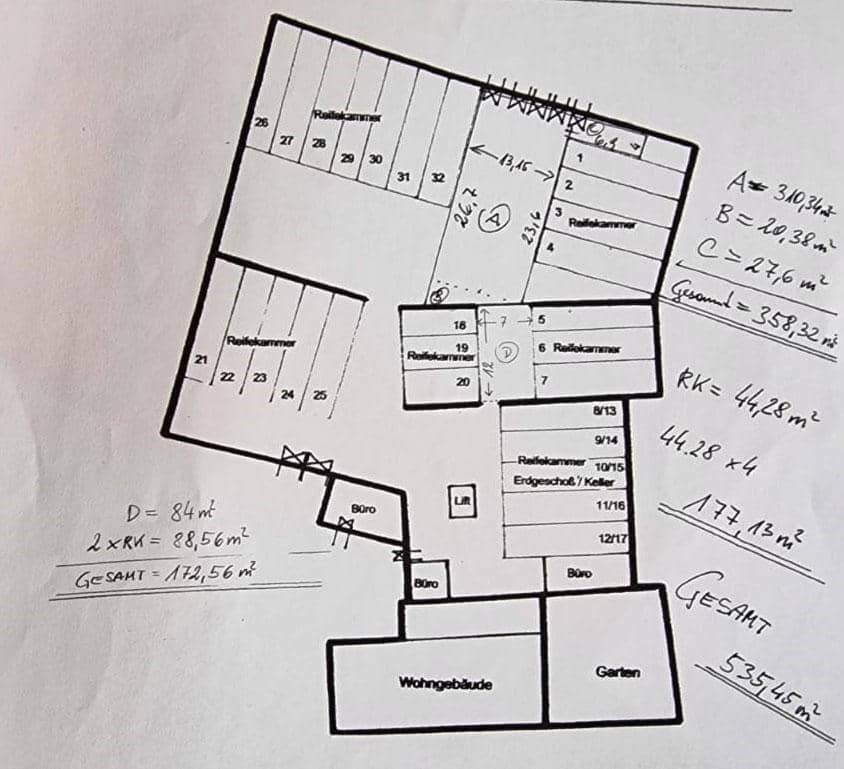 26
27
28
Reifekammer
29
30
31
32
13,15
26,7
A
23,6
C
6,9
1
2
3
Reifekammer
4
A = 310,34 m²
B = 20,38 m²
C = 27,6 m²
Gesamt = 358,32 m²
RK = 44,28 m²
44.28 x 4
177,13 m²
GESAMT
535,45 m²
B
Reifekammer
21
22
23
24
25
18
19
Reifekammer
20
7
12
D
5
6 Reifekammer
7
8/13
9/14
Reifekammer 10/15
Erdgeschoß / Keller
11/16
12/17
Lift
Büro
Büro
Büro
D = 84 m²
2 x RK = 88,56 m²
GESAMT = 172,56 m²
Wohngebäude
Garten